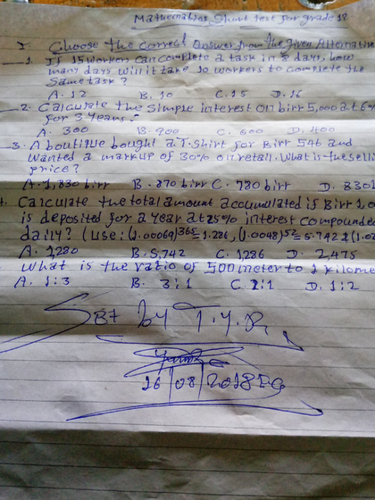 Mathematics Short test for grade 12
I. Choose the correct answer from the given Alternative
1. If 15 worker can complete a task in 8 days, how
many days will it take 10 workers to complete the
same task?
A. 12 B. 10 C. 15 D. 16
2. Calculate the simple interest on birr 5,000 at 6%
for 3 years.
A. 300 B. 900 C. 600 D. 400
3. A boutique bought a T.shirt for Birr 546 and
wanted a markup of 30% on retail. What is the selli
price?
A. 1,830 birr B. 870 birr C. 780 birr D. 330
Calculate the total amount accumulated if Birr 1,0
is deposited for a year at 25% interest compounded
daily? (use: (1.00069)365 = 1.286, (1.0048)52 = 5.742 & (1.0
A. 1,230 B. 5,742 C. 1286 D. 2,475
what is the ratio of 500 meter to 1 kilome
A. 1:3 B. 3:1 C. 2:1 D. 1:2
SBT by T.Y.R
16/08/2018 EG